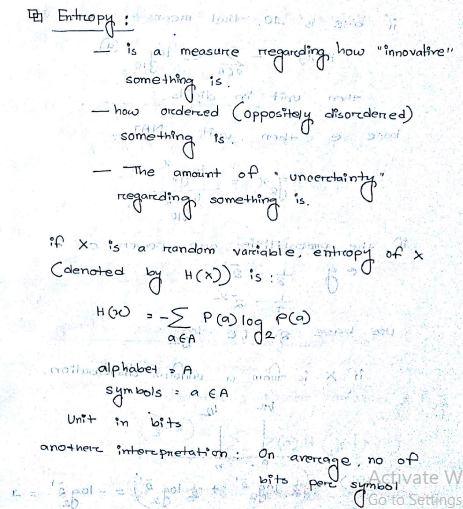 Entropy :
— is a measure regarding how "innovative"
something is.
— how ordered (oppositely disordered)
something is.
— The amount of "uncertainty"
regarding something is.
if X is a random variable, entropy of x
(denoted by H(X)) is :
H(x) = -∑ P(a) log₂ P(a)
a∈A
alphabet = A
symbols = a ∈ A
Unit in bits
another interpretation : On average, no of
bits per symbol
Activate W
Go to Settings